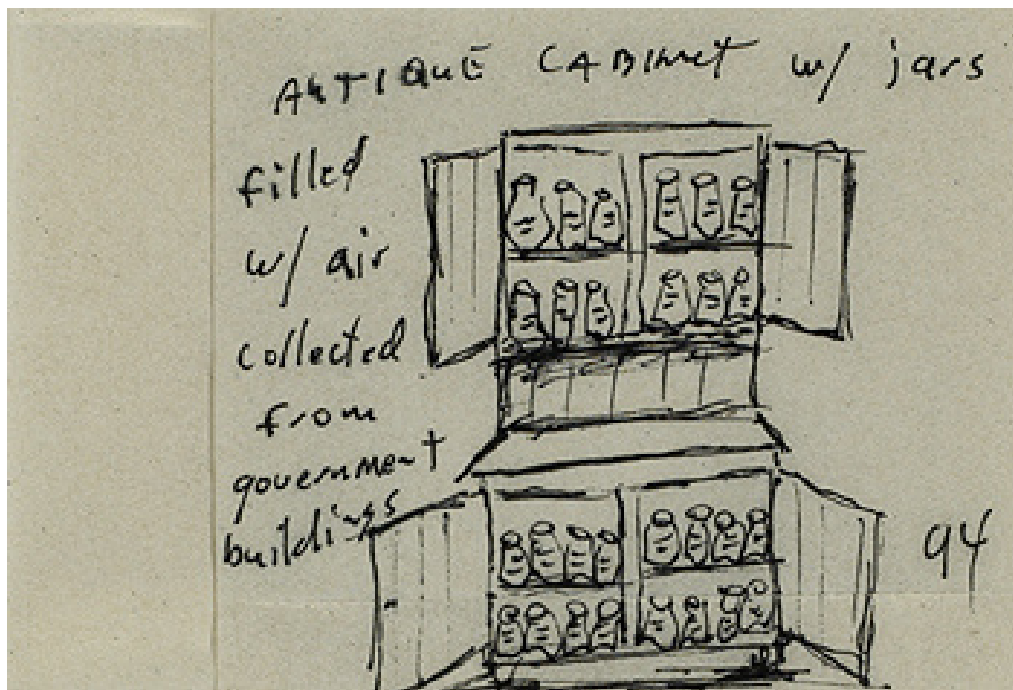 ANTIQUE CABINET w/ jars
filled
w/ air
collected
from
government
buildings
94